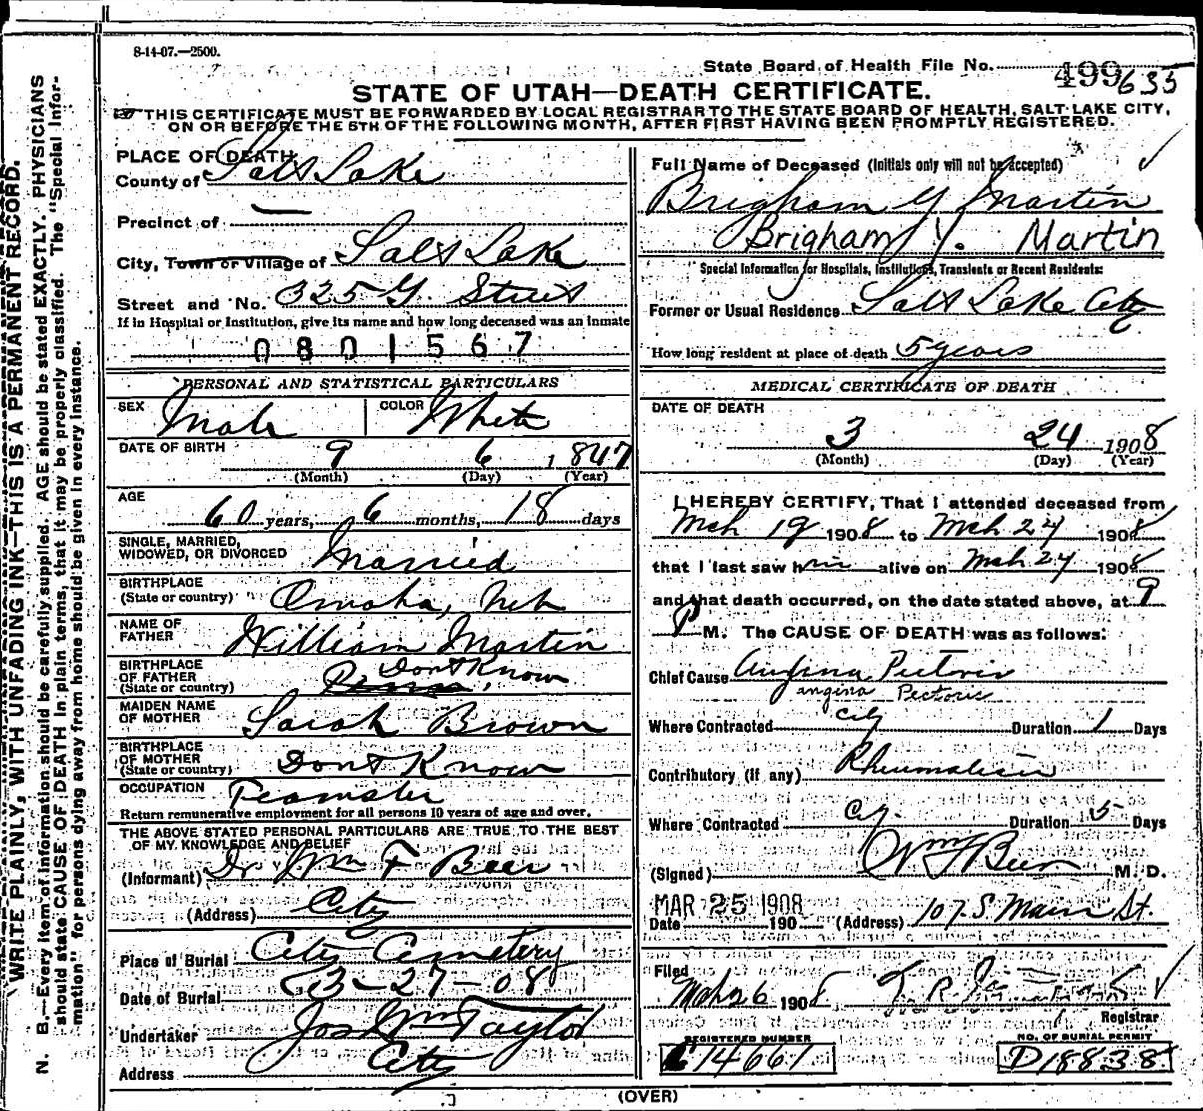 8-14-07.—2500.
State Board of Health File No. 499 635
STATE OF UTAH—DEATH CERTIFICATE.
THIS CERTIFICATE MUST BE FORWARDED BY LOCAL REGISTRAR TO THE STATE BOARD OF HEALTH, SALT LAKE CITY,
ON OR BEFORE THE 5TH OF THE FOLLOWING MONTH, AFTER FIRST HAVING BEEN PROMPTLY REGISTERED.
WRITE PLAINLY, WITH UNFADING INK—THIS IS A PERMANENT RECORD.
N. B.—Every item of information should be carefully supplied. AGE should be stated EXACTLY. PHYSICIANS
should state CAUSE OF DEATH in plain terms, that it may be properly classified. The "Special Infor-
mation" for persons dying away from home should be given in every instance.
PLACE OF DEATH
County of Salt Lake
Precinct of —
City, Town or Village of Salt Lake
Street and No. 325 G. Street
If in Hospital or Institution, give its name and how long deceased was an inmate
0801567
PERSONAL AND STATISTICAL PARTICULARS
SEX Male COLOR White
DATE OF BIRTH 9 6 1847
(Month) (Day) (Year)
AGE
60 years, 6 months, 18 days
SINGLE, MARRIED,
WIDOWED, OR DIVORCED Married
BIRTHPLACE
(State or country) Omaha, Neb
NAME OF
FATHER William Martin
BIRTHPLACE
OF FATHER Dont Know
(State or country)
MAIDEN NAME
OF MOTHER Sarah Brown
BIRTHPLACE
OF MOTHER
(State or country) Dont Know
OCCUPATION Teamster
Return remunerative employment for all persons 10 years of age and over.
THE ABOVE STATED PERSONAL PARTICULARS ARE TRUE TO THE BEST
OF MY KNOWLEDGE AND BELIEF
(Informant) Dr. Wm F Beer
(Address) City
Place of Burial City Cemetery
Date of Burial 3-27-08
Undertaker Jos Wm Taylor
Address City
Full Name of Deceased (Initials only will not be accepted)
Brigham Y Martin
Brigham Y. Martin
Special Information for Hospitals, Institutions, Transients or Recent Residents:
Former or Usual Residence Salt Lake City
How long resident at place of death 5 years
MEDICAL CERTIFICATE OF DEATH
DATE OF DEATH
3 24 1908
(Month) (Day) (Year)
I HEREBY CERTIFY, That I attended deceased from
Mch 19 1908 to Mch 24 1908
that I last saw him alive on Mch 24 1908
and that death occurred, on the date stated above, at 9
P M. The CAUSE OF DEATH was as follows:
Chief Cause Angina Pectoris
angina Pectoris
Where Contracted City Duration 1 Days
Contributory (if any) Rheumatism
Where Contracted City Duration 5 Days
(Signed) Wm F Beer M. D.
MAR 25 1908
Date 190 (Address) 107 S Main St.
Filed
Mch 26 1908
Registrar
REGISTERED NUMBER
C14661
NO. OF BURIAL PERMIT
D18838
(OVER)